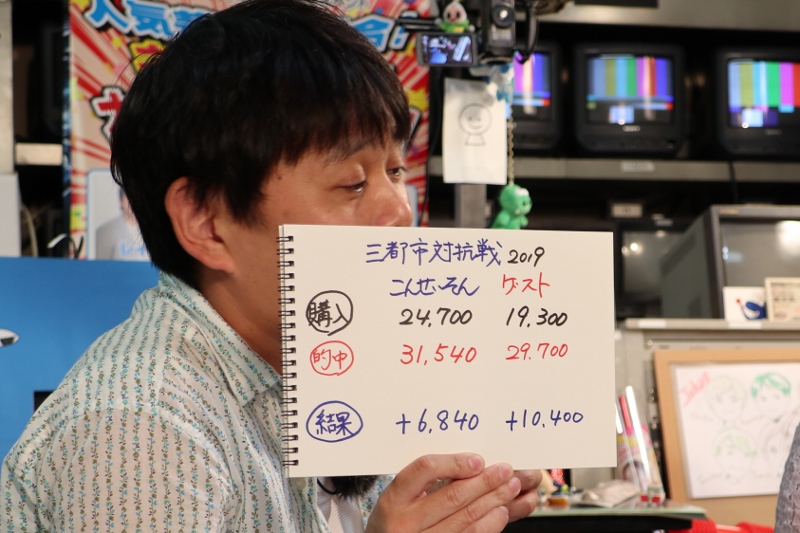 人気
三都市対抗戦 2019
こんせいそん ゲスト
購入 24,700 19,300
的中 31,540 29,700
結果 +6,840 +10,400